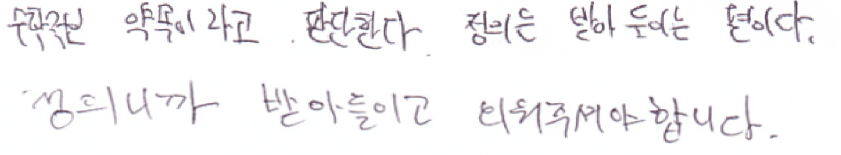 수학은 약속이라고 판단한다. 정의는 받아들이는 편이다.
정의니까 받아들이고 외워주셔야합니다.